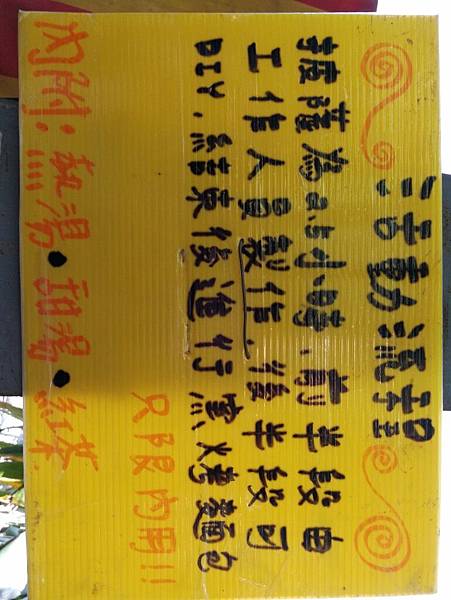 活動流程
披薩為2.5小時、前半段由
工作人員製作、後半段可
DIY、結束後進行窯烤麵包
只限內用!!
內附:熱湯•甜湯•紅茶